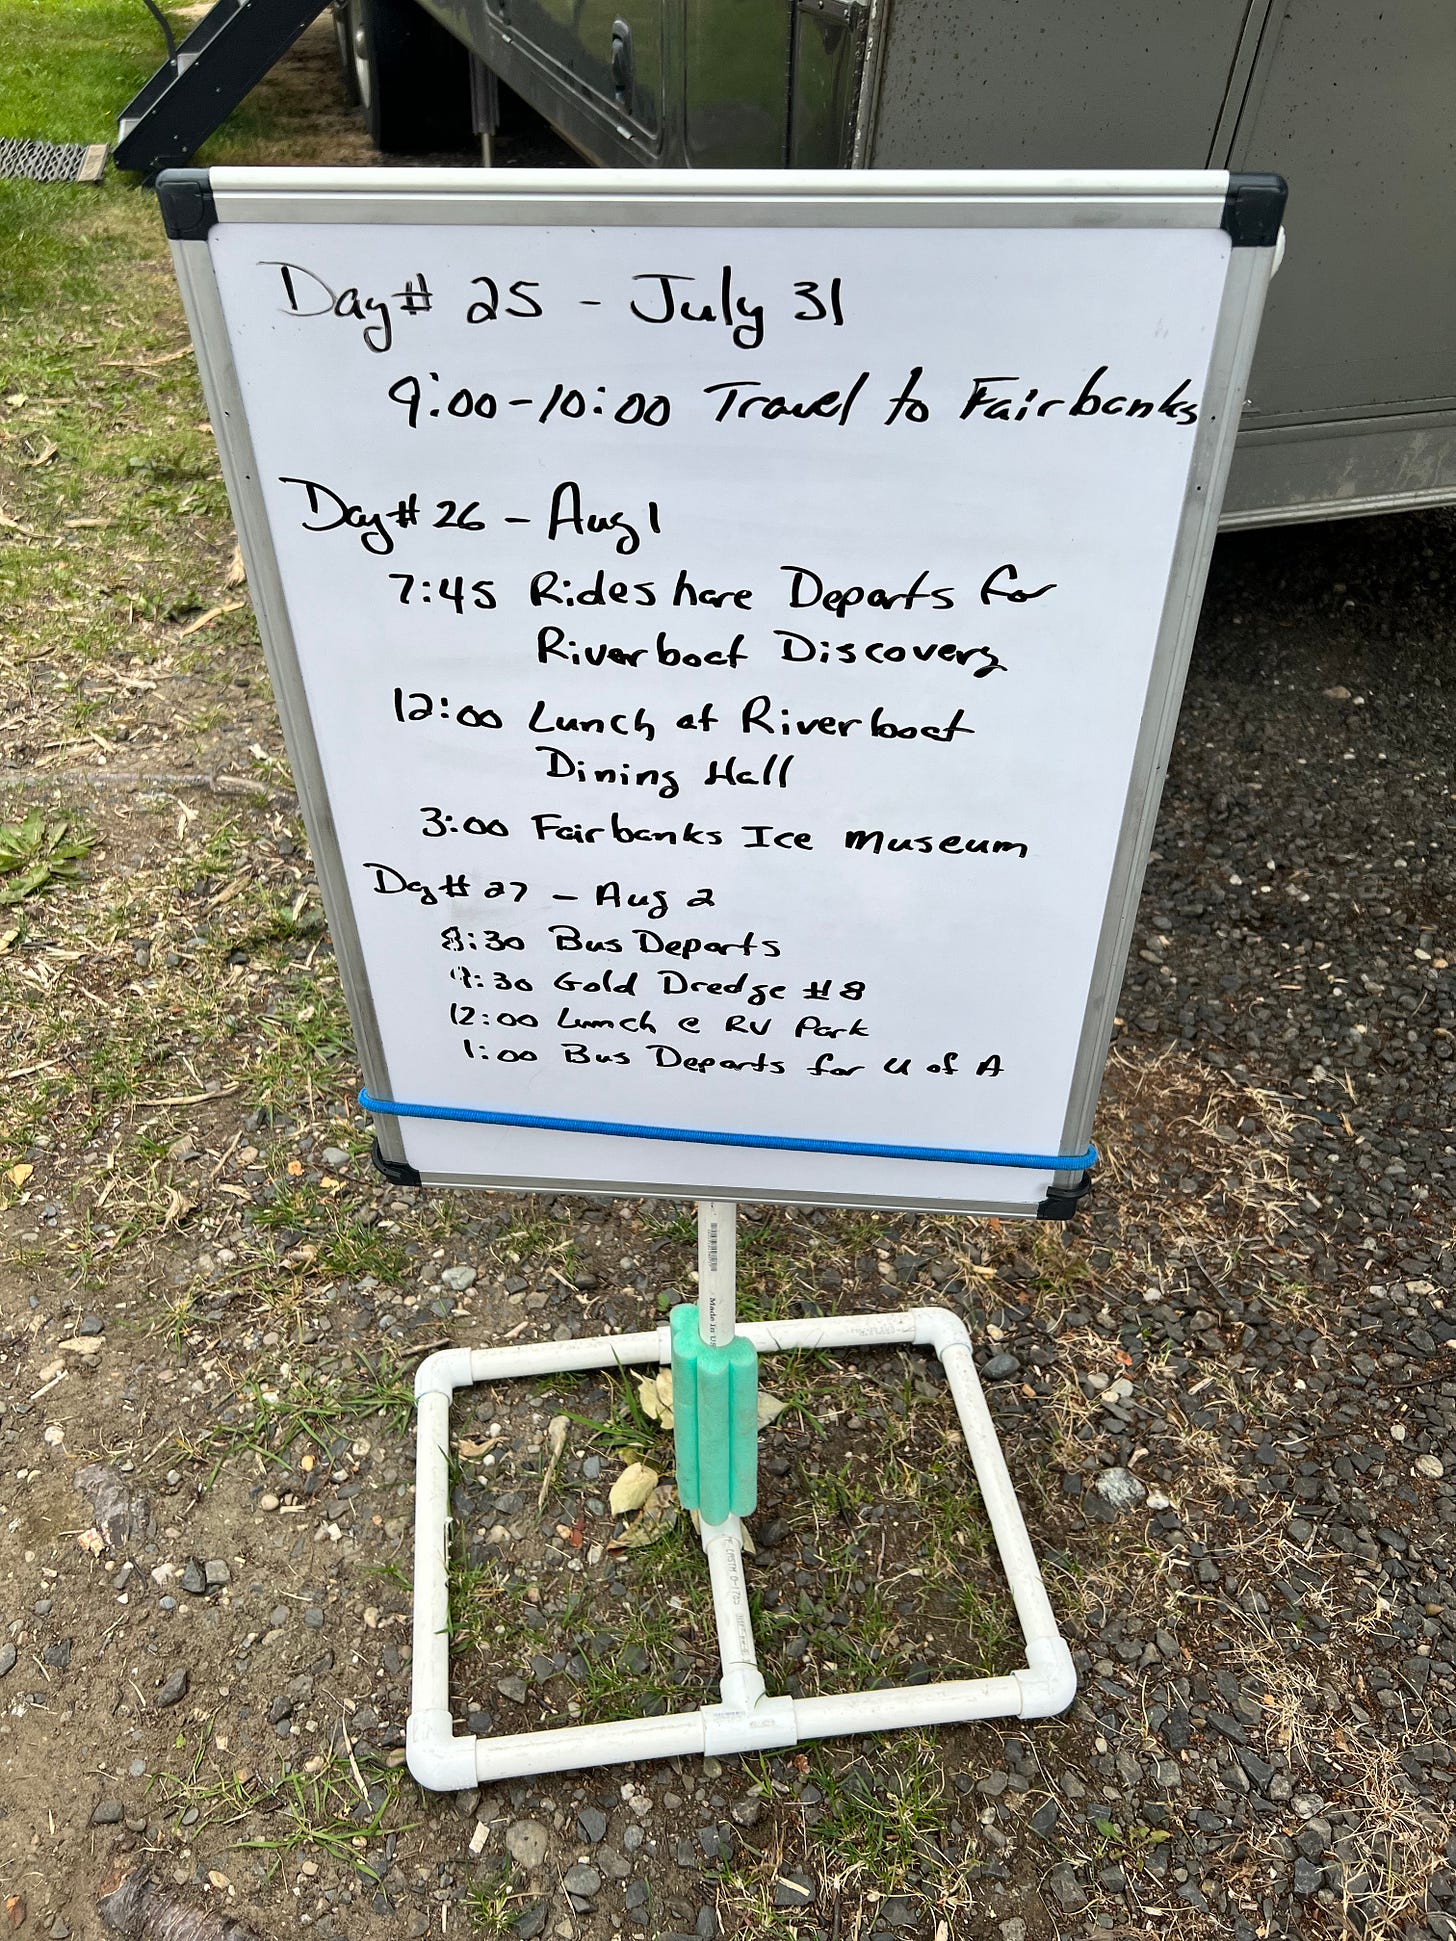 Day# 25 - July 31
9:00-10:00 Travel to Fairbanks
Day# 26 - Aug 1
7:45 Rideshare Departs for
Riverboat Discovery
12:00 Lunch at Riverboat
Dining Hall
3:00 Fairbanks Ice Museum
Day# 27 - Aug 2
8:30 Bus Departs
9:30 Gold Dredge #8
12:00 Lunch @ RV Park
1:00 Bus Departs for U of A
Made In